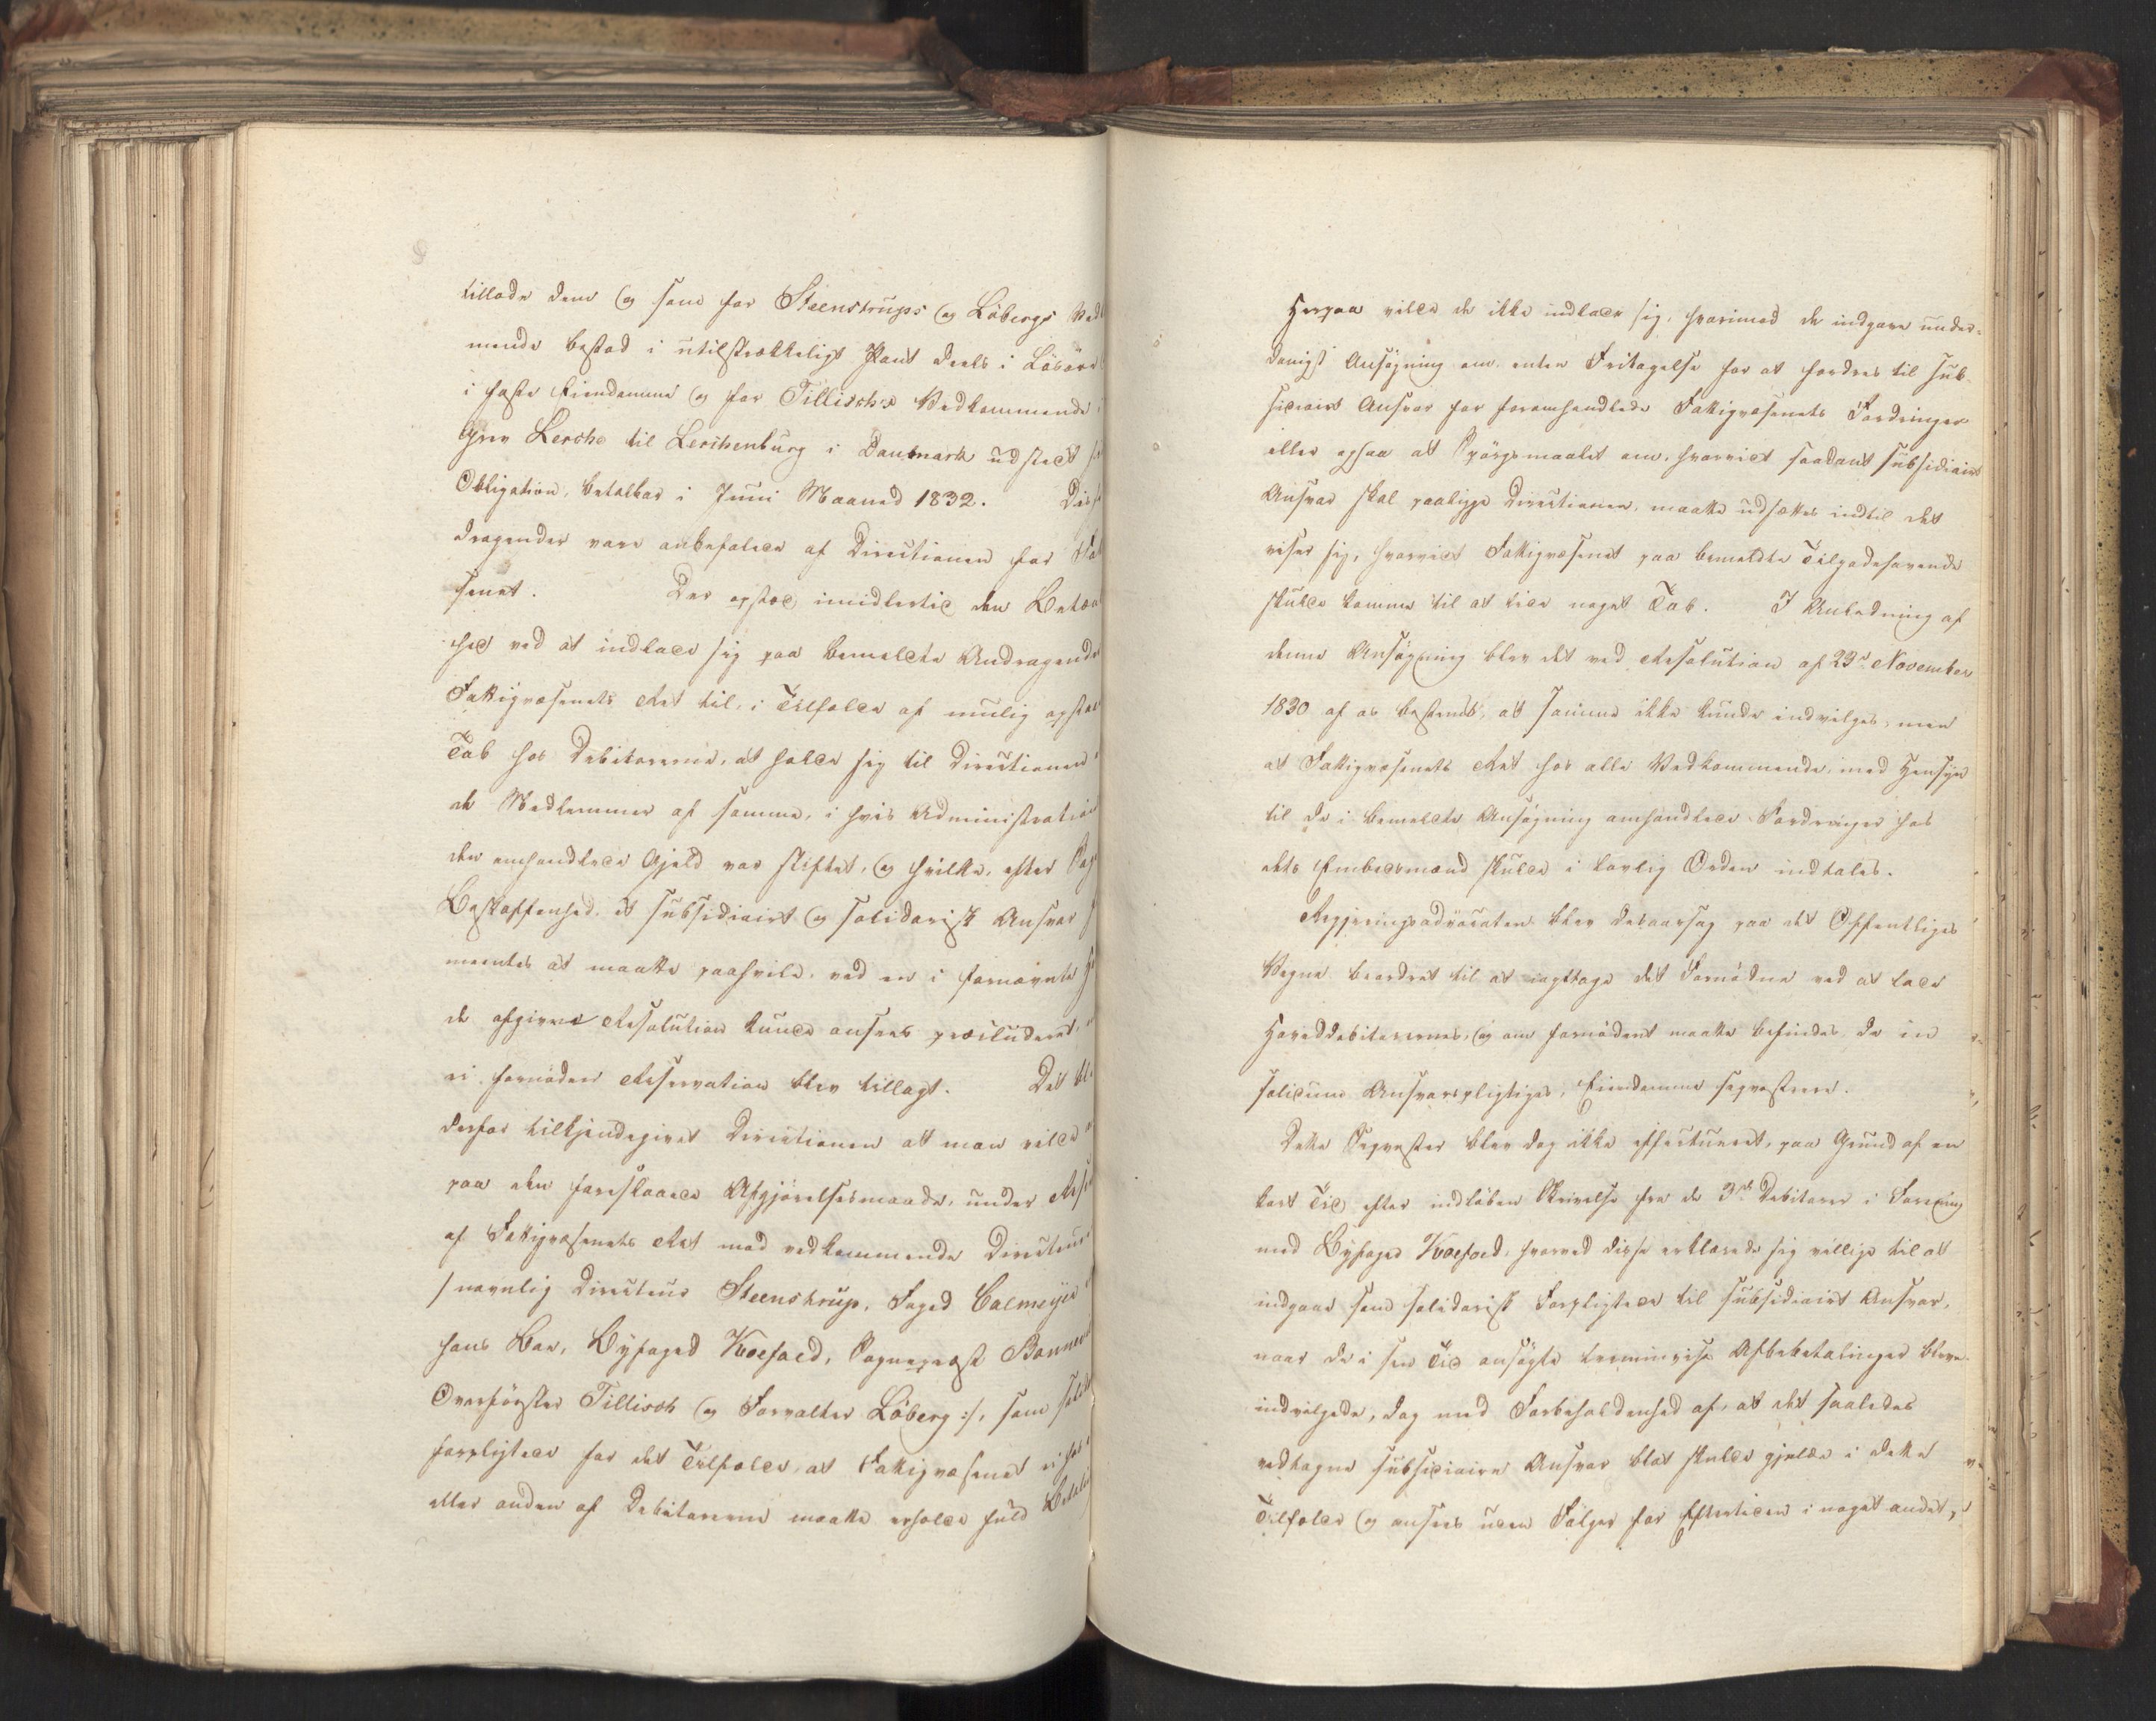 tillode dem og som for Steenstrups og Löbergs Ved
mende bestod i utilstrækkeligt Pant deels i Lösöre
i faste Eiendomme og for Tillisch's Vedkommende i
Grev Lerche til Lerchenburg i Danmark udstædt
Obligation, betalbar i Juni Maaned 1832. Disse
dragender vare anbefalede af Directionen for Fat
senet. Der opstod imidlertid den Betæn
hed ved at indlade sig paa bemeldte Andragende
Fattigvæsenets Ret til, i Tilfælde af mulig opstaa
Tab hos Debitorerne, at holde sig til Directionen
de Medlemmer af samme, i hvis Administration
den omhandlede Gjeld var stiftet, og hvilke, efter Sag
Beskaffenhed, et subsidiairt og solidarisk Ansvar
meentes at maatte paahvile, ved en i fornævnte
de afgiven Resolution kunde ansees præcluderet,
ei fornøden Reservation blev tillagt. Det ble
derfor tilkjendegivet Directionen at man vilde
paa den foreslaaede Afgjörelsesmaade, under Rese
af Fattigvæsenets Ret mod vedkommende Directeurer
/: navnlig Directeur Steenstrup, Foged Calmeyer
hans Boe, Byfoged Koefoed, Sogneprest
Overförster Tillisch og Forvalter Löberg :/, som
forpligtede for det Tilfælde, at Fattigvæsenet ei hos
eller anden af Debitorerne maatte erholde fuld Betali
Herpaa vilde de ikke indlade sig, hvorimod de indgave under-
danigst Ansøgning om enten Fritagelse for at fordres til sub-
sidiairt Ansvar for foromhandlede Fattigvæsenets Fordringer
eller ogsaa at Spörgsmaalet om, hvorvidt saadant subsidiairt
Ansvar skal paaligge Directionen, maatte udsættes indtil det
viser sig, hvorvidt Fattigvæsenet paa bemeldte Tilgodehavende
skulde komme til at lide noget Tab. I Anledning af
denne Ansögning blev det ved Resolution af 23d November
1830 af os bestemt, at samme ikke kunde indvilges, men
at Fattigvæsenets Ret hos alle Vedkommende, med Hensyn
til de i bemeldte Ansögning omhandlede Fordringer hos
dets Embedsmænd skulde i lovlig Orden indtales.
Regjeringsadvocaten blev desaarsag paa det Offentliges
Vegne beordret til at iagttage det Fornödne ved at lade
Hoveddebitorernes, og om fornödent maatte befindes, de in
solidum Ansvarspligtiges, Eiendomme seqvestrere.
Dette Seqvester blev dog ikke effectueret, paa Grund af en
kort Tid efter indlöben Skrivelse fra de 3de Debitorer i Forening
med Byfoged Koefoed, hvorved disse erklærede sig villige til at
indgaae som solidarisk Forpligtede til subsidiairt Ansvar,
naar de i sin Tid ansögte terminvise Afbebetalinger bleve
indvilgede, dog med Forbeholdenhed af, at det saaledes
vedtagne subsidiaire Ansvar blot skulde gjelde i dette
Tilfælde og ansees uden Fölger for Eftertiden i noget andet,